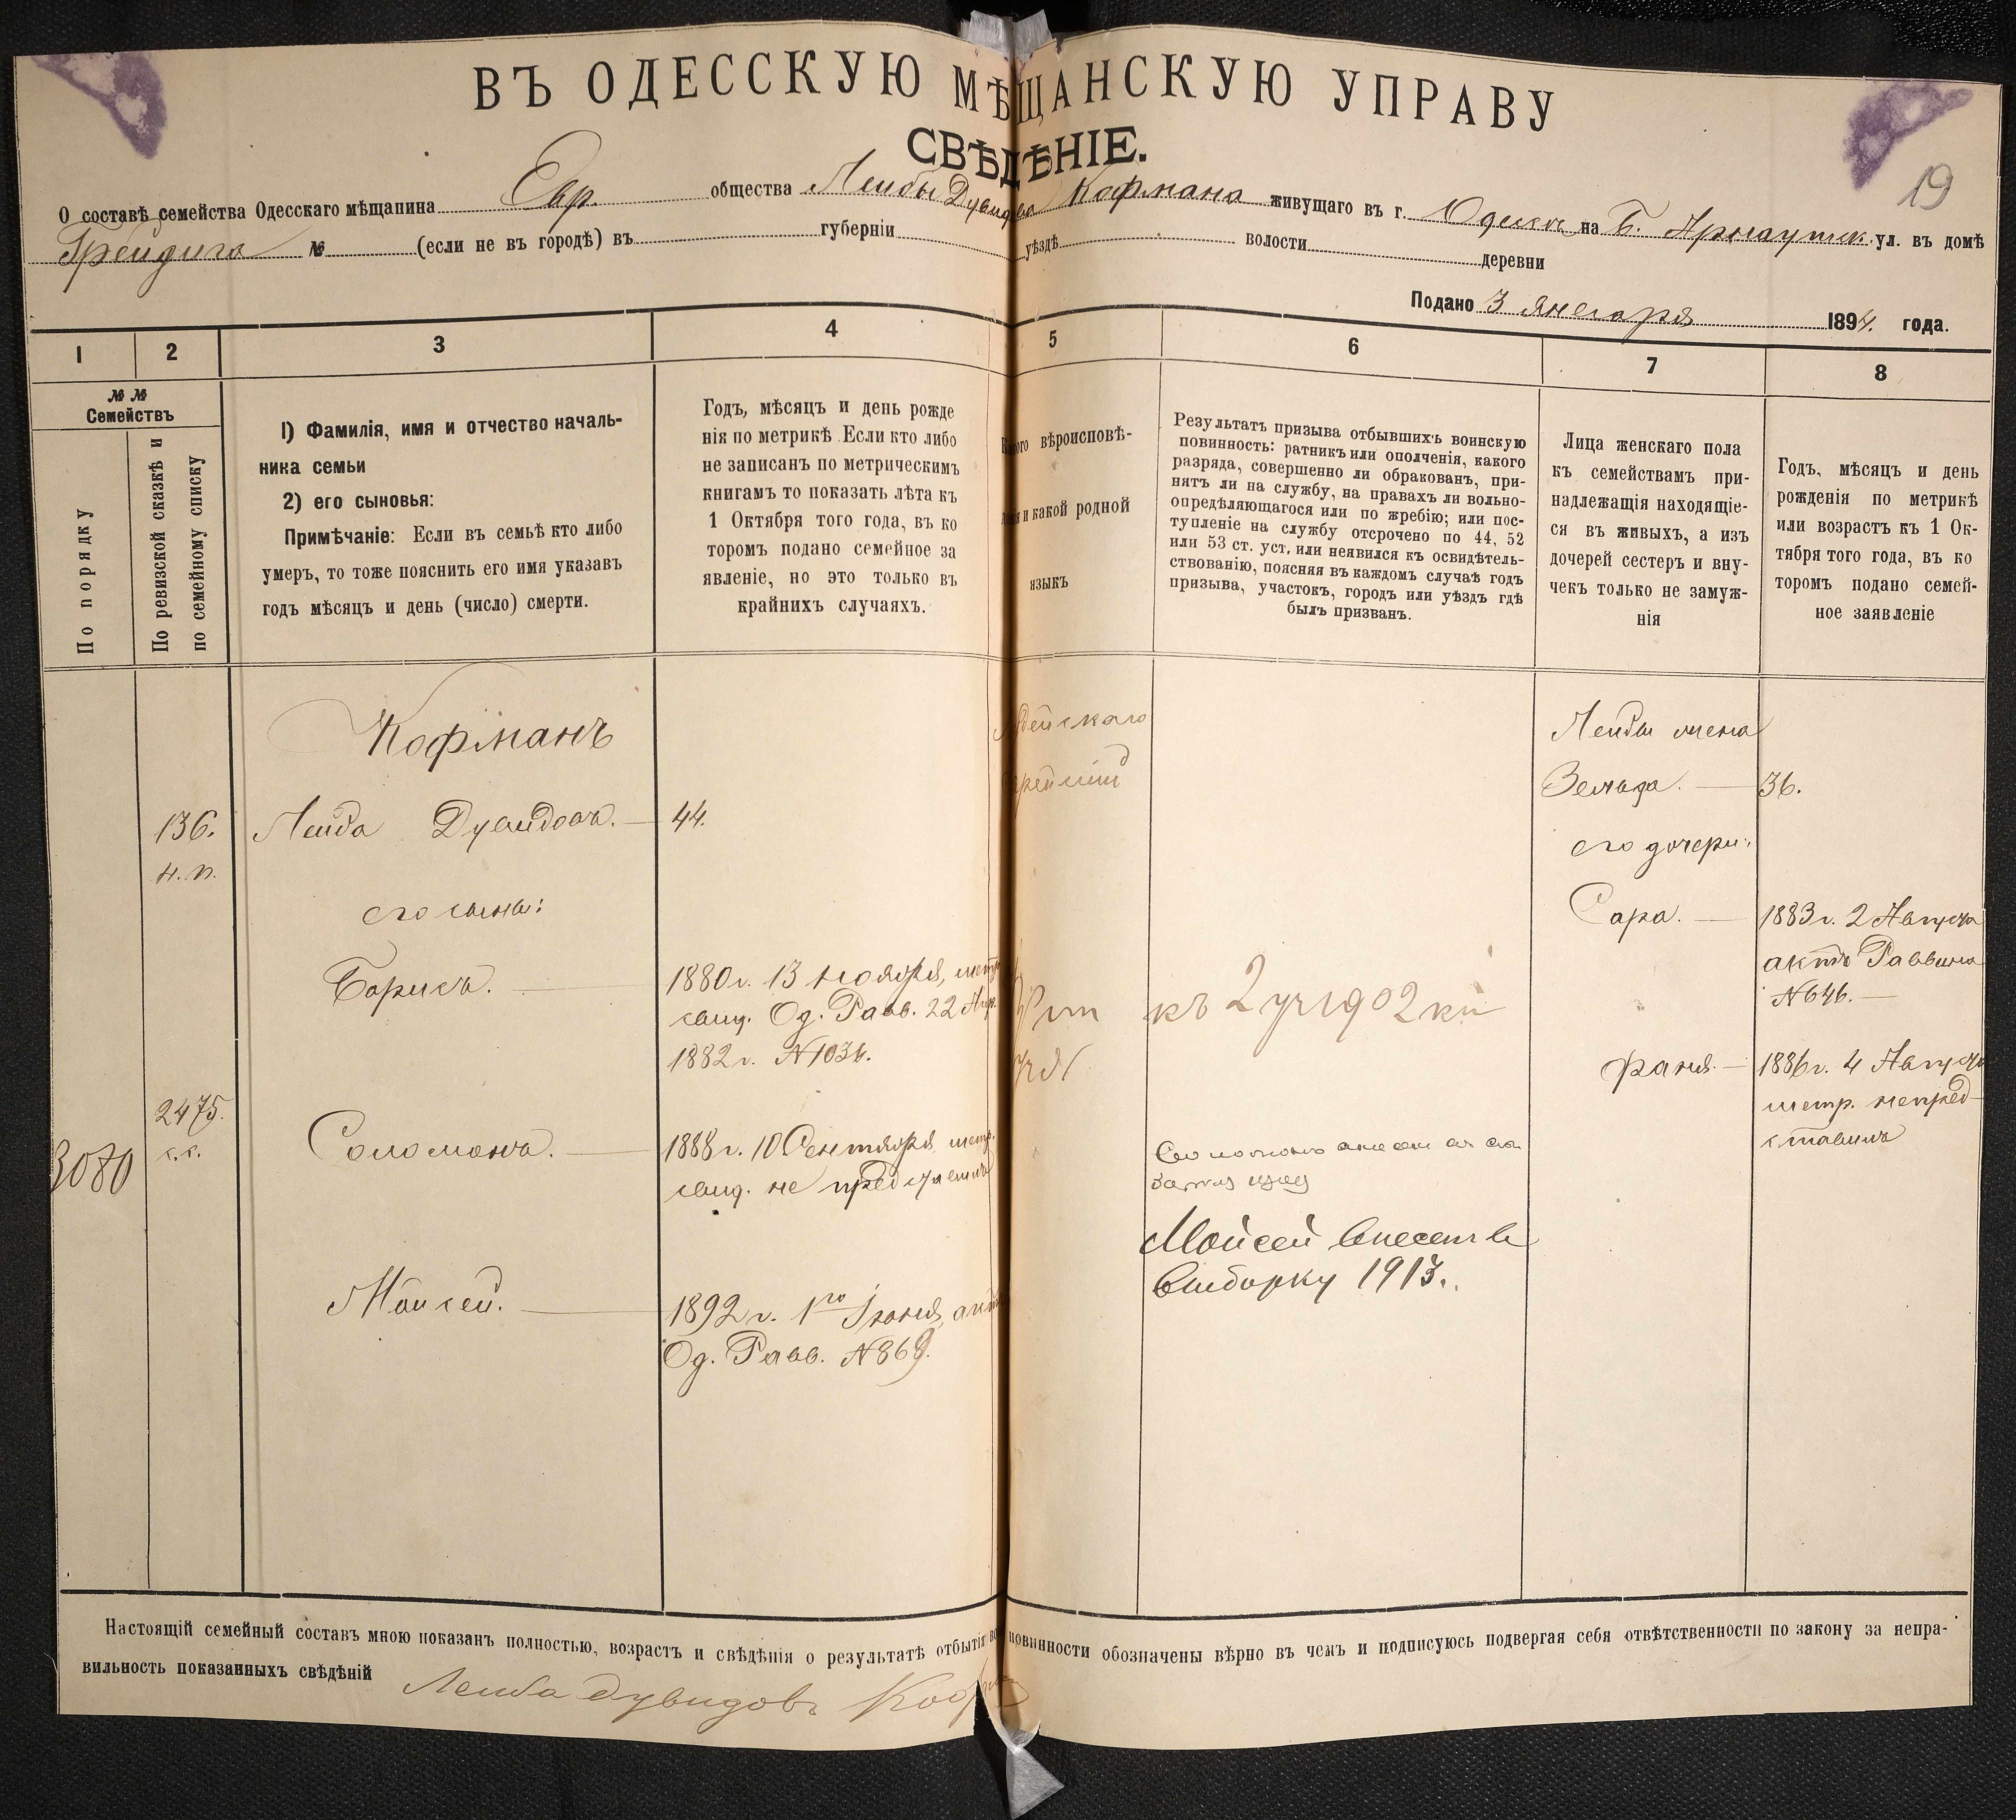 ВЪ ОДЕССКУЮ МѢЩАНСКУЮ УПРАВУ
СВѢДѢНІЕ.
19
О составѣ семейства Одесскаго мѣщанина Евр. общества Лейбы Дувидова Кофмана живущаго въ г. Одессѣ на Б. Арнаутск. ул. въ домѣ
Грейдига № (если не въ городѣ) въ губерніи уѣздѣ волости деревни
Подано 3 января 1894 года.
1 2 3 4 5 6 7 8
№ №
Семействъ
По порядку
По ревизской сказкѣ и
по семейному списку
1) Фамилія, имя и отчество началь-
ника семьи
2) его сыновья:
Примѣчаніе: Если въ семьѣ кто либо
умеръ, то тоже пояснить его имя указавъ
годъ мѣсяцъ и день (число) смерти.
Годъ, мѣсяцъ и день рожде
нія по метрикѣ Если кто либо
не записанъ по метрическимъ
книгамъ то показать лѣта къ
1 Октября того года, въ ко
торомъ подано семейное за
явленіе, но это только въ
крайнихъ случаяхъ.
вѣроисповѣ-
и какой родной
языкъ
Результатъ призыва отбывшихъ воинскую
повинность: ратникъ или ополченія, какого
разряда, совершенно ли обракованъ, при-
нятъ ли на службу, на правахъ ли вольно-
опредѣляющагося или по жребію; или пос-
тупленіе на службу отсрочено по 44, 52
или 53 ст. уст. или неявился къ освидѣтель-
ствованію, поясняя въ каждомъ случаѣ годъ
призыва, участокъ, городъ или уѣздъ гдѣ
былъ призванъ.
Лица женскаго пола
къ семействамъ при-
надлежащія находящіе-
ся въ живыхъ, а изъ
дочерей сестеръ и вну-
чекъ только не замуж-
нія
Годъ, мѣсяцъ и день
рожденія по метрикѣ
или возрастъ къ 1 Ок-
тября того года, въ ко
торомъ подано семей-
ное заявленіе
Кофманъ
136.
н. п.
Лейба Дувидовъ. 44.
его сыны:
Борисъ.
1880 г. 13 ноября, метр.
свид. Од. Равв. 22 Апр.
1882 г. N 1036.
къ 2 уч 1902
3080
2475.
с. с.
Соломонъ.
1888 г. 10 Сентября, метр.
свид. не представилъ
Соломонъ
Мойсей внесенъ в
выборку 1913.
Мойсей.
1892 г. 1го Іюня, актъ
Од. Равв. N 869.
Лейбы жена
Зельда. 36.
его дочери:
Сара.
1883 г. 2 Августа
актъ Раввина
N 646.
Фаня.
1886 г. 4 Августа
метр. непред-
ставилъ
Настоящій семейный составъ мною показанъ полностью, возрастъ и свѣдѣнія о результатѣ отбытія повинности обозначены вѣрно въ чемъ и подписуюсь подвергая себя отвѣтственности по закону за непра-
вильность показанныхъ свѣдѣній
Лейба Дувидовъ